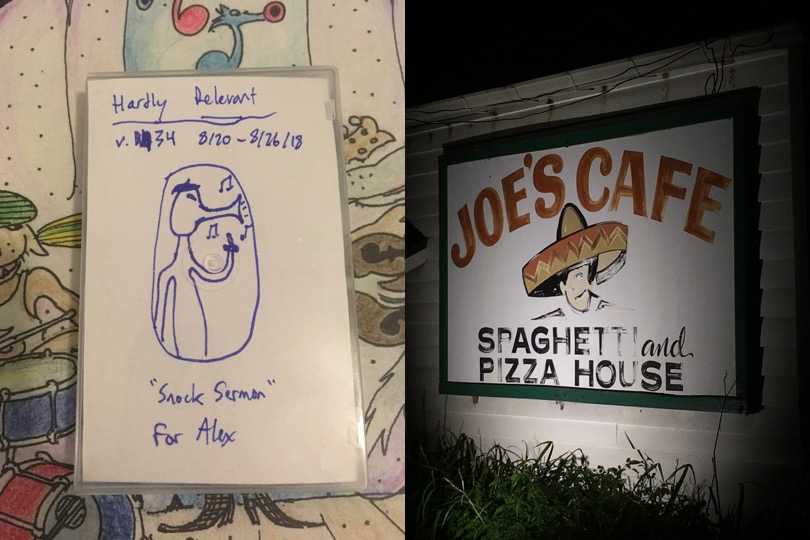 Hardly Relevant
v. 34 8/20 - 8/26/18
"Snock Sermon"
For Alex
JOE'S CAFE
SPAGHETTI and
PIZZA HOUSE